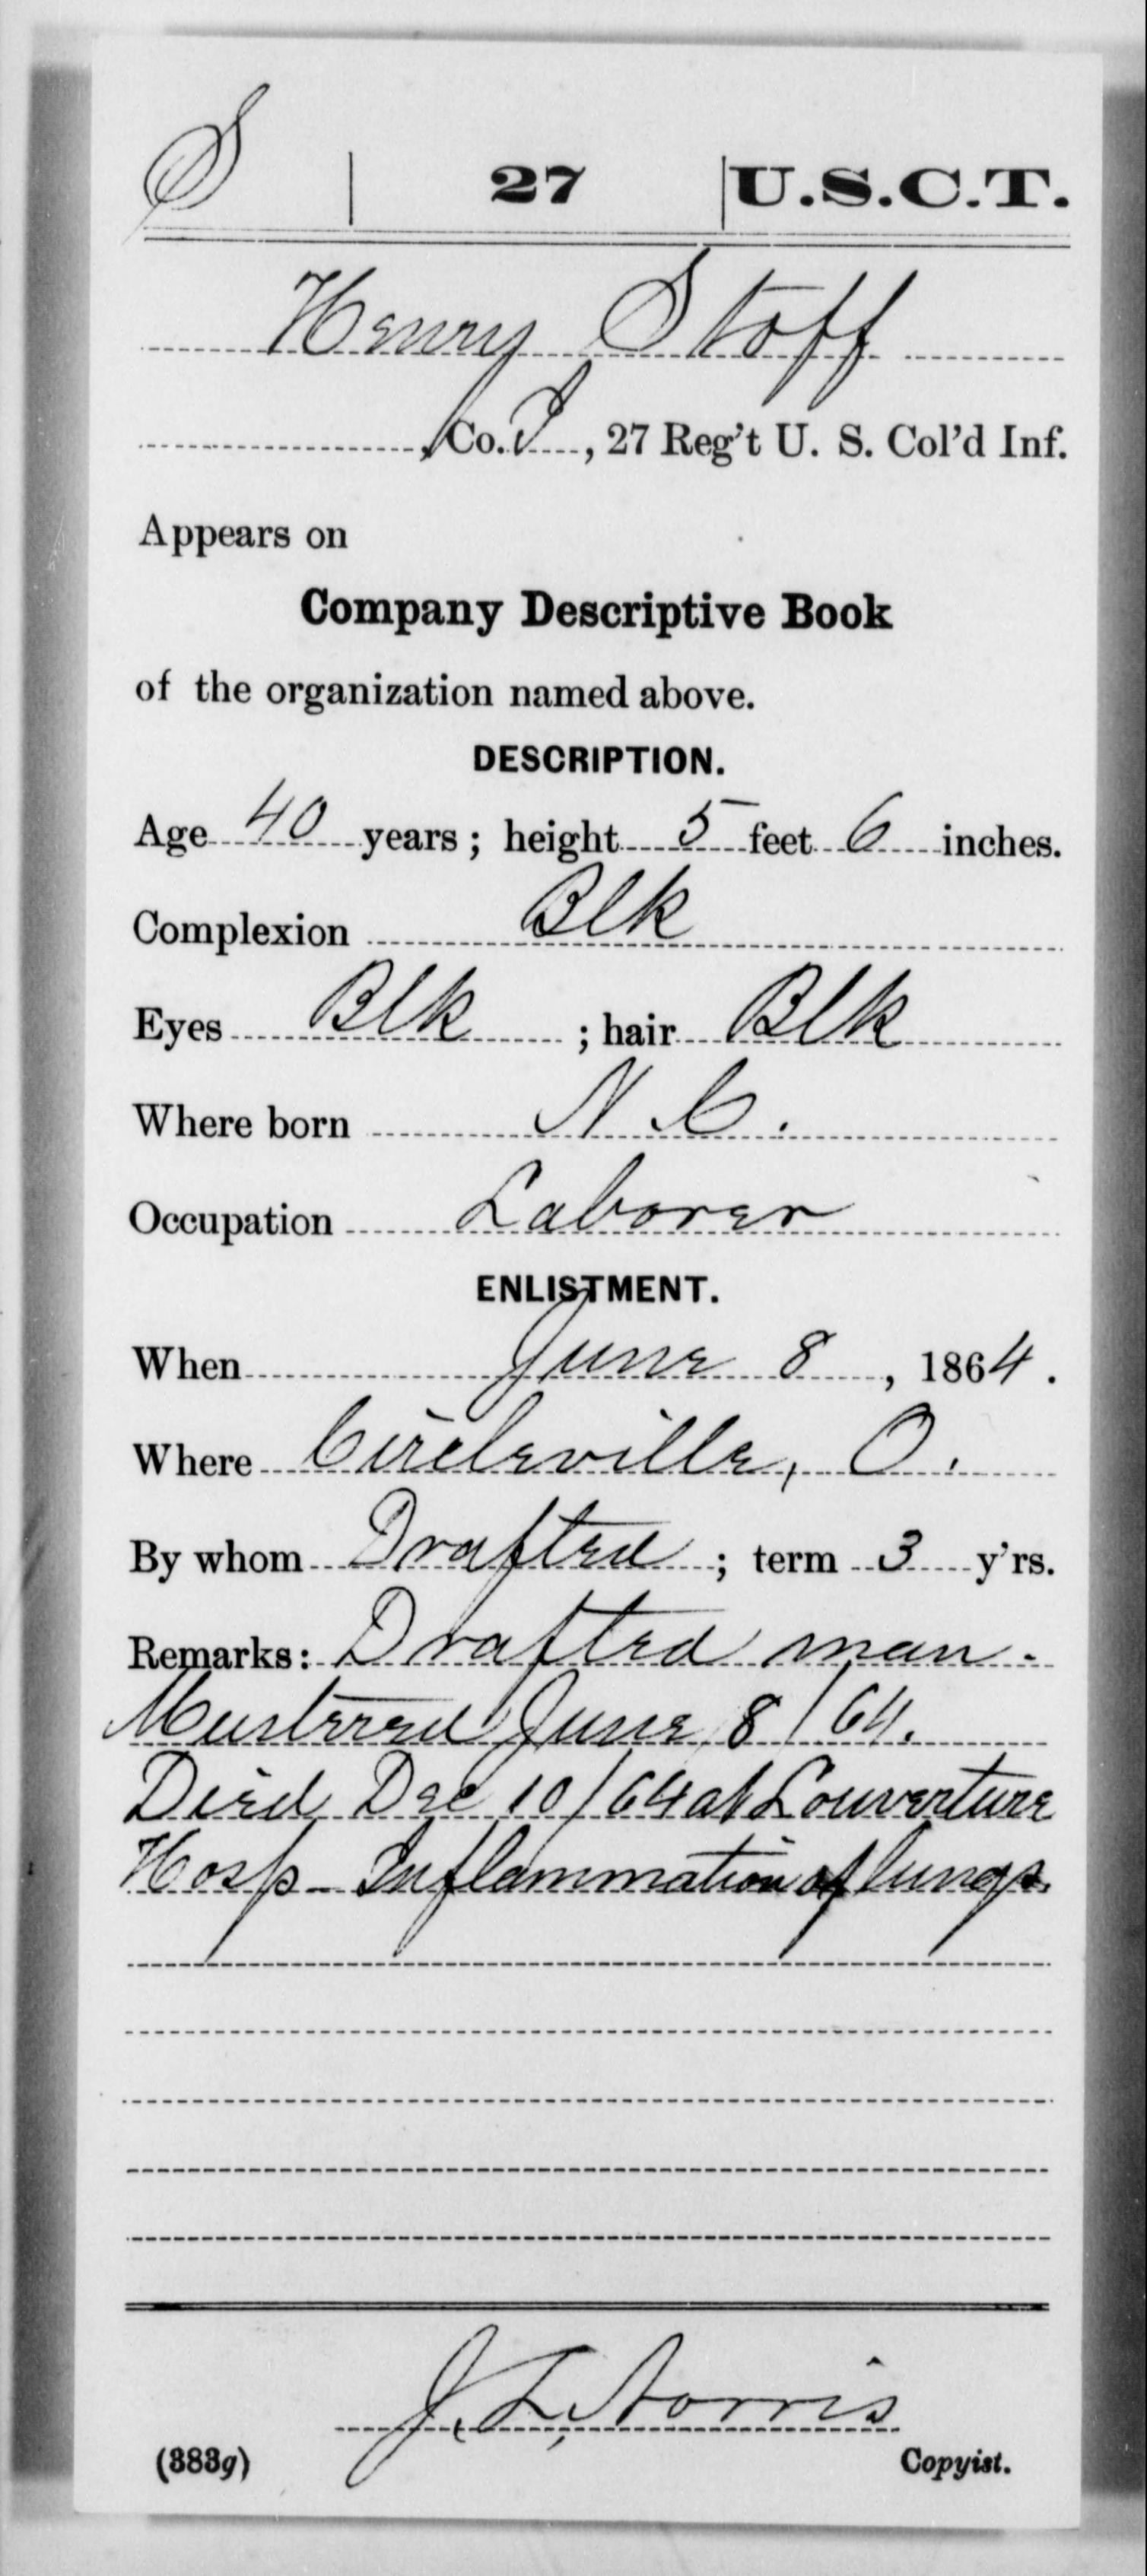 S | 27 | U.S.C.T.
Henry Stoff
, Co. I, 27 Reg't U. S. Col'd Inf.
Appears on
Company Descriptive Book
of the organization named above.
DESCRIPTION.
Age 40 years; height 5 feet 6 inches.
Complexion Blk
Eyes Blk ; hair Blk
Where born N. C.
Occupation Laborer
ENLISTMENT.
When June 8, 1864.
Where Circleville, O.
By whom Drafted; term 3 y'rs.
Remarks: Drafted man.
Mustered June 8/64.
Died Dec 10/64 at Louverture
Hosp - Inflammation of lungs.
J. L. Norris
(383g) Copyist.